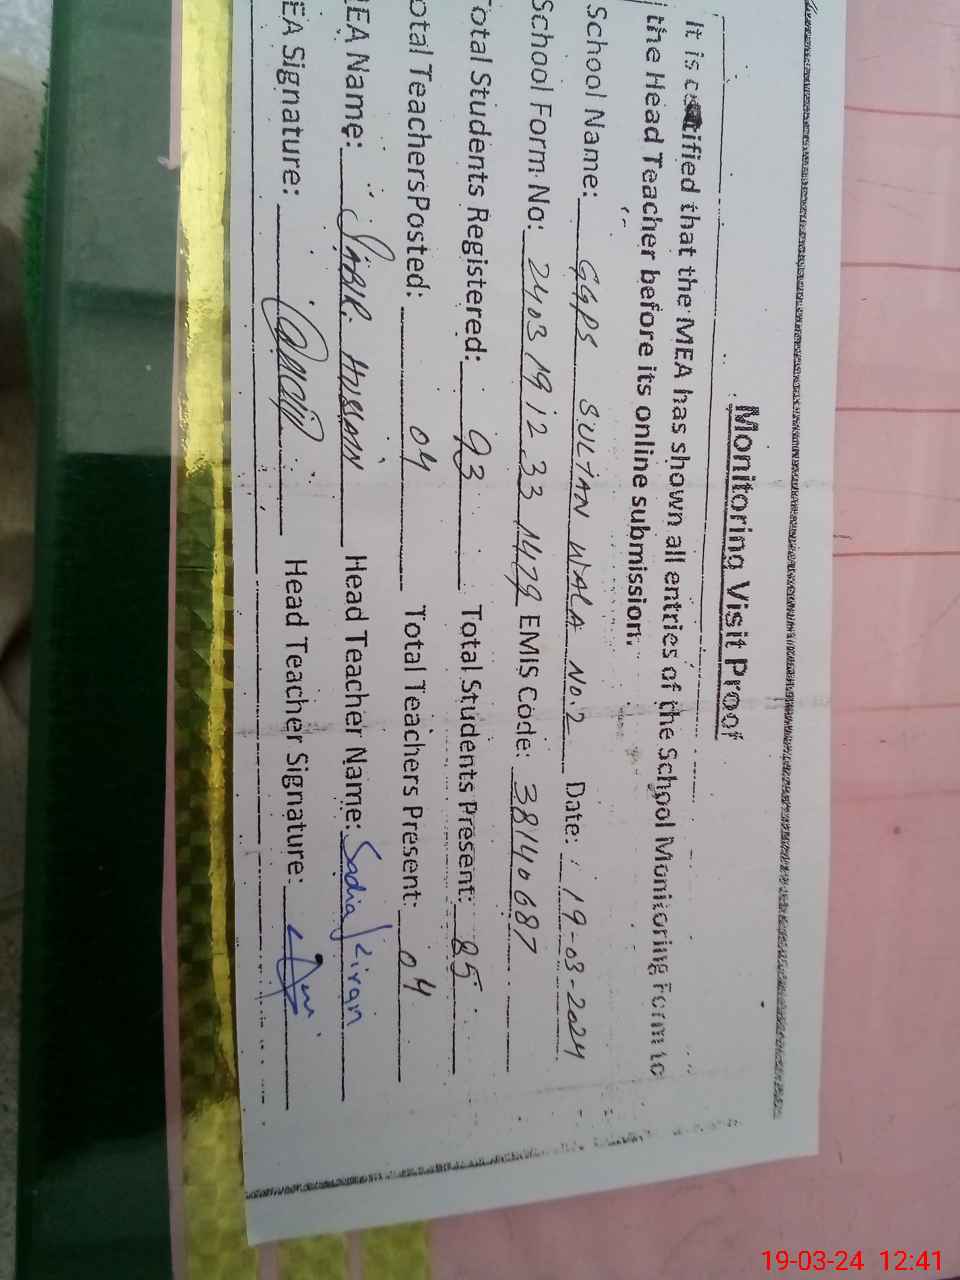 Monitoring Visit Proof
It is certified that the MEA has shown all entries of the School Monitoring Form to
the Head Teacher before its online submission.
School Name: GGPS SULTAN WALA No.2 Date: 19-03-2024
School Form No: 2403 19 12 33 1479 EMIS Code: 38140687
Total Students Registered: 93 Total Students Present: 85
otal Teachers Posted: 04 Total Teachers Present: 04
EA Name: SABIR HUSSAIN Head Teacher Name: Sadia Kiran
EA Signature: Head Teacher Signature:
19-03-24 12:41